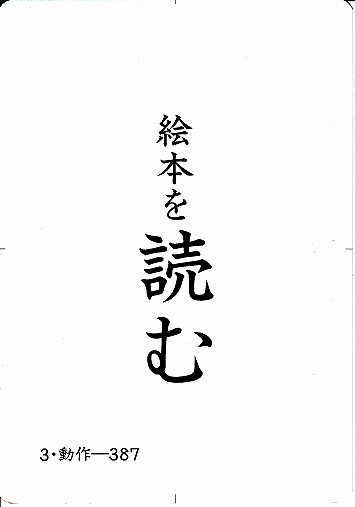 絵本を読む
3・動作―387